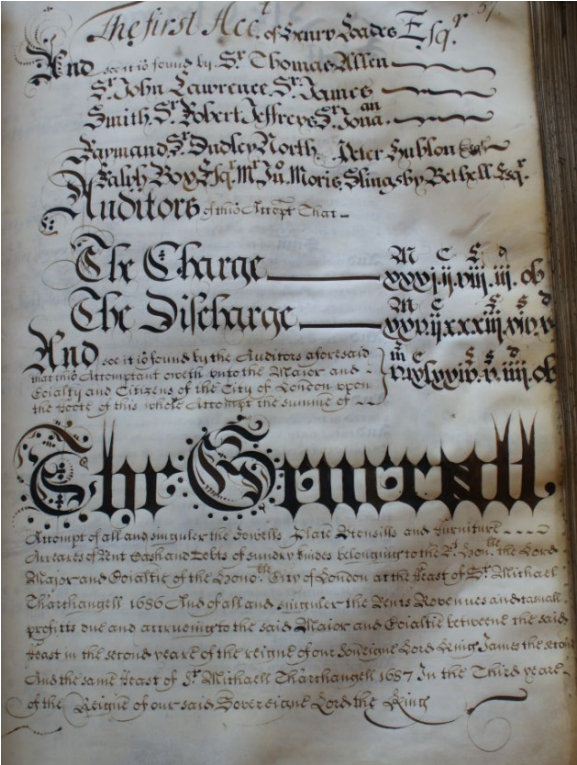 The first Acc.t of Henry Loades Esq.r 37.
And soe it is found by Sr. Thomas Allen
Sr. John Lawrence Sr. James
Smith Sr. Robert Jeffreys Sr. Jona.an
Raymand Sr. Dudley North Peter Hublon Esqr
Ralph Box Esq.r Mr. Jno. Moris Slingsby Bethell Esq.r
Auditors of this Accompt That
The Charge M C £ d
The Discharge M C £ s d
And soe it is found by the Auditors aforesaid
that this Accomptant oweth unto the Maior and
Coialty and Citizens of the City of London upon
the foote of this whole Accompt the summe of
The Generall
Accompt of all and singuler the Jewells Plate Utensills and furniture
Arreares of Rent Cash and Debts of sundry kindes belonging to the Rt. Hono.ble the Lord
Maior and Coialtie of the Hono.ble City of London at the Feast of St. Michael
Tharchangell 1686 And of all and singuler the Rents Revennues and casuall
profitts due and accrueing to the said Maior and Coialtie betweene the said
Feast in the second yeare of the reigne of our Soveigne Lord King James the second
And the same Feast of St. Michaell Tharchangell 1687 In the Third yeare
of the Reigne of our said Sovereigne Lord the King